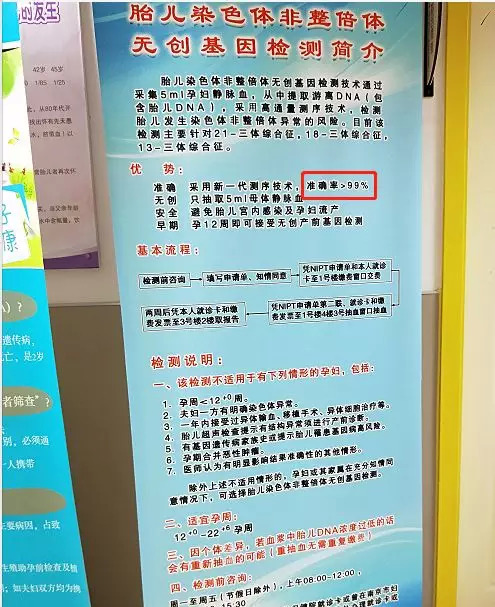 胎儿染色体非整倍体
无创基因检测简介
胎儿染色体非整倍体无创基因检测技术通过
采集5ml孕妇静脉血，从中提取游离DNA（包
含胎儿DNA），采用高通量测序技术，检测
胎儿发生染色体非整倍体异常的风险。目前该
检测主要针对21-三体综合征，18-三体综合征，
13-三体综合征。
优 势：
准确 采用新一代测序技术，准确率>99%
无创 只抽取5ml母体静脉血
安全 避免胎儿宫内感染及孕妇流产
早期 孕12周即可接受无创产前基因检测
基本流程：
检测前咨询
填写申请单、知情同意
凭NIPT申请单和本人就诊
卡至1号楼缴费窗口交费
凭NIPT申请单第二联、就诊卡和缴
费发票至1号楼4楼3号抽血窗口抽血
两周后凭本人就诊卡和缴
费发票至3号楼2楼取报告
检测说明：
一、该检测不适用于有下列情形的孕妇，包括：
1. 孕周<12+0周。
2. 夫妇一方有明确染色体异常。
3. 一年内接受过异体输血、移植手术、异体细胞治疗等。
4. 胎儿超声检查提示有结构异常须进行产前诊断。
5. 有基因遗传病家族史或提示胎儿罹患基因病高风险。
6. 孕期合并恶性肿瘤。
7. 医师认为有明显影响结果准确性的其他情形。
除外上述不适用情形的，孕妇或其家属在充分知情同
意情况下，可选择胎儿染色体非整倍体无创基因检测。
二、适宜孕周：
12+0-22+6孕周
三、因个体差异，若血浆中胎儿DNA浓度过低的话
会有重新抽血的可能（重抽血无需重复缴费）
四、检测前咨询：
周一至周五（节假日除外），上午08:00-12:00，
的发生
42岁 45岁
1/65 1/25
康
者筛查”？